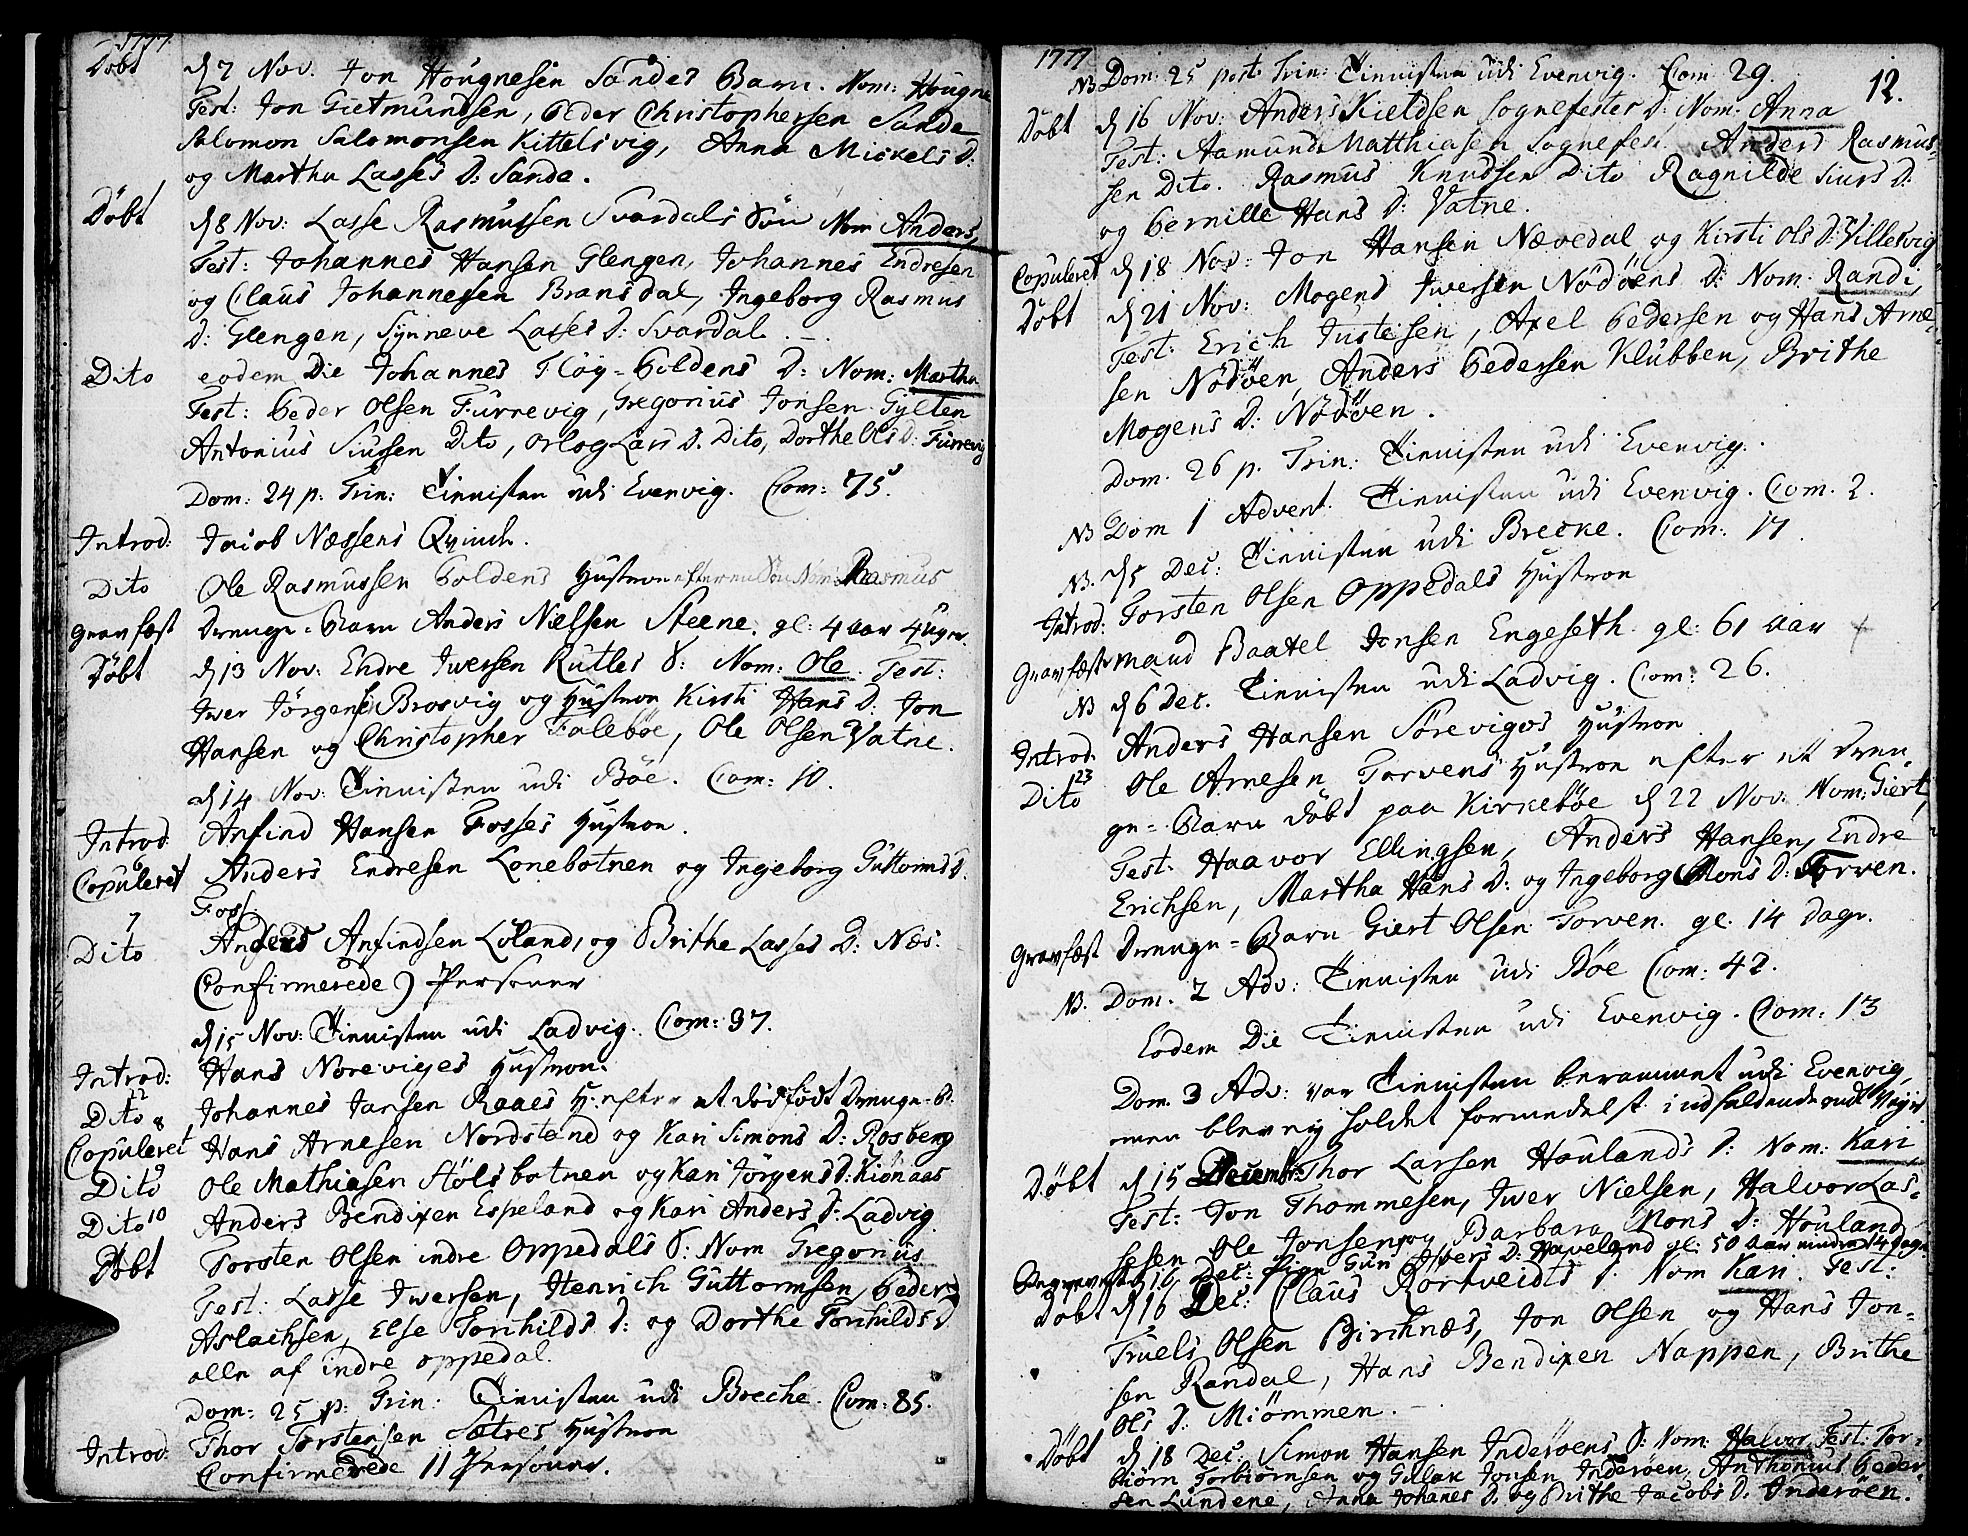 1777.
Döbt d 7 Nov. Jon Hougnesen Sandes Barn. Nom: Hougne
Test: Jon Gietmundsen, Peder Christophersen Sande
Salomon Salomonsen Kittelsvig, Anna Mickels D:
og Martha Lasses D: Sande.
Döbt d 8 Nov: Lasse Rasmussen Svardals Sön Nom Anders,
Test: Johannes Hansen Glengen, Johannes Endresen
og Claus Johannesen Bransdal, Ingeborg Rasmus
D: Glengen, Synneve Lasses D: Svardal.
Dito eodem Die Johannes Flöy-Poldens D: Nom: Martha
Test: Peder Olsen Furrevig, Gregorius Jonsen Gylten
Antonius Siursen Dito, Orlog Lars D. Dito, Dorthe Ols D: Furrevig
Dom: 24 p: Trin: Tienisten udi Evenvig. Com: 75.
Introd: Jacob Næssens Qvinde.
Dito Ole Rasmussen Poldens Hustroe efter en Sön Nom: Rasmus
Gravfæst Drenge-Barn Anders Nielsen Steene. gl: 4 aar 4 Uger.
Döbt d 13 Nov: Endre Iversen Rutles S: Nom: Ole. Test:
Iver Jörgens: Brosvig og Hustroe Kirsti Hans D: Jon
Hansen og Christopher Faleböe, Ole Olsen Vatne.
d 14 Nov: Tienisten udi Böe. Com: 10.
Introd Anfind Hansen Fosses Hustroe.
6
Copuleret Anders Endresen Lonebotnen og Ingeborg Guttorms D.
Foss.
7
Dito Anders Anfindsen Löland, og Brithe Lasses D: Næs.
Confirmerede 9 Personer
d 15 Nov: Tienisten udi Ladvig. Com: 37.
Introd: Hans Noreviges Hustroe.
Dito Johannes Jansen Raaes H: efter et dödfödt Drenge-B:
8
Copuleret Hans Arnesen Nordstrand og Kari Simons D: Rosberg
9
Dito Ole Mathiasen Hölsbotnen og Kari Jörgens D: Kiönaas
Dito 10 Anders Bendixen Espeland og Kari Anders D: Ladvig.
Döbt Torsten Olsen indre Oppedals S: Nom Gregorius
Test: Lasse Iversen, Henrich Guttormsen, Peder
Aslachsen, Else Torchilds D: og Dorthe Torchilds D
alle af indre oppedal.
Dom: 25 p: Trin: Tienisten udi Breche. Com: 85.
Introd: Thor Torstensen Sætres Hustroe
Confirmerede 11 Personer.
1777
12.
NB Dom: 25 post Trin: Tienisten udi Evenvig. Com 29.
Döbt d 16 Nov: Anders Kieldsen Sognefester D: Nom: Anna
Test: Aamund Matthiasen Sognefest Anders Rasmus-
sen Dito. Rasmus Knudsen Dito Ragnilde Siurs D:
og Pernille Hans D: Vatne.
Copuleret d 18 Nov: Jon Hansen Nævedal og Kirsti Ols D: Villesvig
Döbt d 21 Nov: Mogens Iversen Nödöens D: Nom: Randi,
Test: Erich Justesen, Axel Pedersen og Hans Arne-
sen Nödöen, Anders Pedersen Klubben, Brithe
Mogens D: Nödöen.
Dom. 26 p. Trin: Tienisten udi Evenvig.
NB Dom 1 Advent. Tienisten udi Evenvig. Com. 2.
NB. d 5 Dec: Tienisten udi Brecke. Com: 17.
Introd: Torsten Olsen Oppedals Hustroe
Gravfæst mand Baatel Jonsen Engeseth. gl: 61 aar
NB d 6 Dec. Tienisten udi Ladvig. Com: 26.
Introd. Anders Hansen Sörevigos Hustroe
23
Dito Ole Arnesen Torvens Hustroe efter et Dren-
ge-Barn döbt paa Kirkeböe d 22 Nov. Nom: Giert,
Test: Haavor Ellingsen, Anders Hansen, Endre
Erichsen, Martha Hans D: og Ingeborg Mons D: Torven.
Gravfæst Drenge-Barn Giert Olsen Torven. gl. 14 Dage.
NB. Dom. 2 Adv: Tienisten udi Böe Com: 42.
Eodem Die Tienisten udi Evenvig. Com: 13
Dom. 3 Adv: var Tienisten berammet udi Evenvig,
men blev ej holdet formedelst indfaldende ondt Vejr
Döbt d 15 Decembr: Thor Larsen Houlands D: Nom: Kari
Test: Jon Thommesen, Iver Nielsen, Halvor Las-
sesen Ole Jonsen og Barbara Mons D: Houland
d 16 Dec: Pige Guri Ifvers D: Haveland gl: 50 aar mindre 14 dage
Döbt d 16 Dec: Claus Rortveidts D. Nom Kari. Test:
Truels Olsen Birchnæs, Jon Olsen og Hans Jon-
sen Randal, Hans Bendixen Nappen, Brithe
Ols D: Miömmen.
Döbt d 18 Dec: Simon Hansen Inderöens S: Nom: Halvor, Test: Tor-
biörn Torbiörnsen og Gullak Jonsen Inderöen, Anthonius Peder-
sen Lundene, Anna Johanes D. og Brithe Jacobs D. Inderöen.